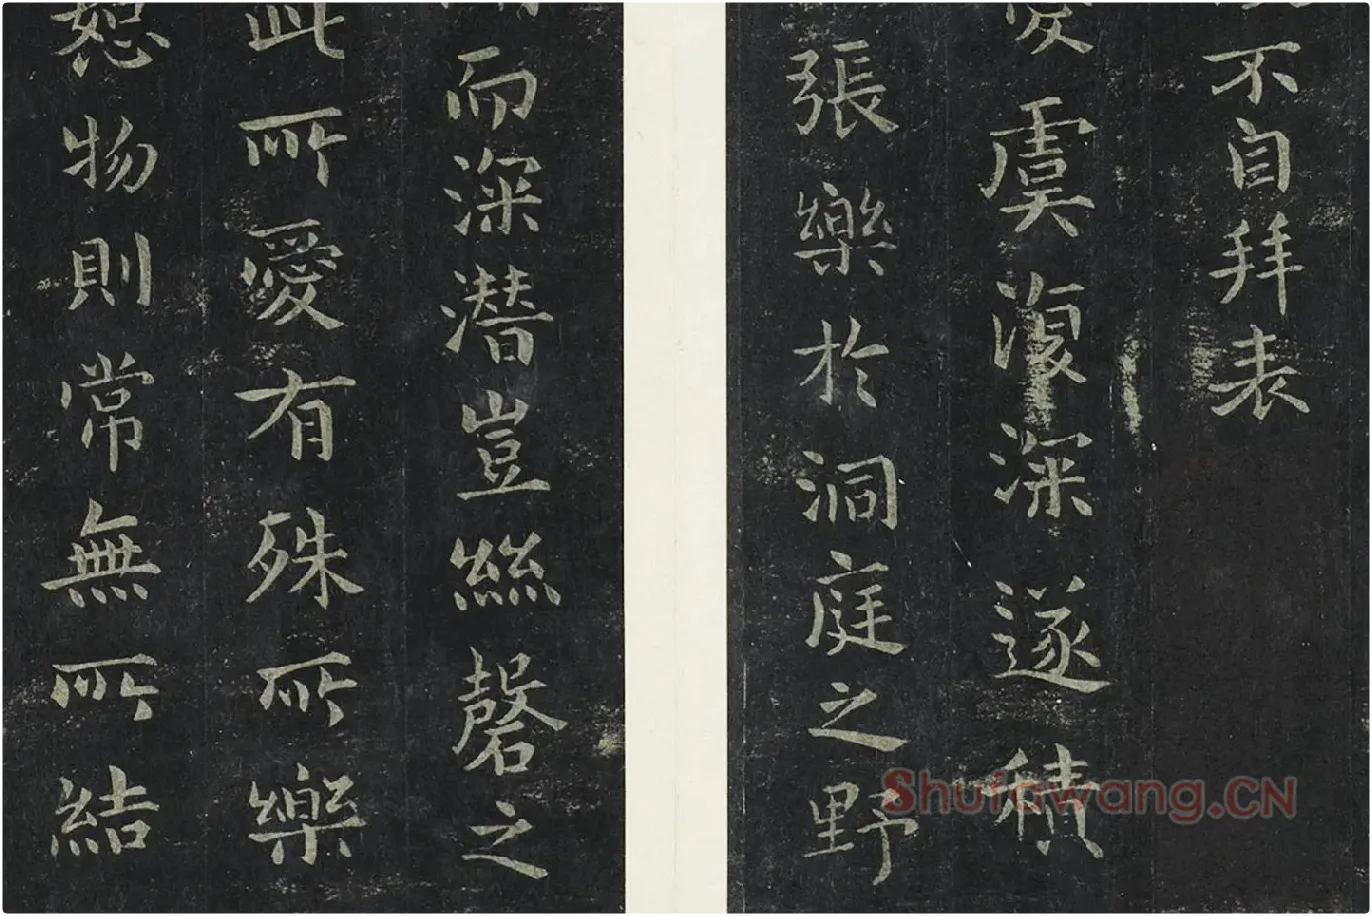 不自拜表
憂虞復深遂積
張樂於洞庭之野
而深潛豈絲磬之
此所愛有殊所樂
恕物則常無所結
Shufawang.CN